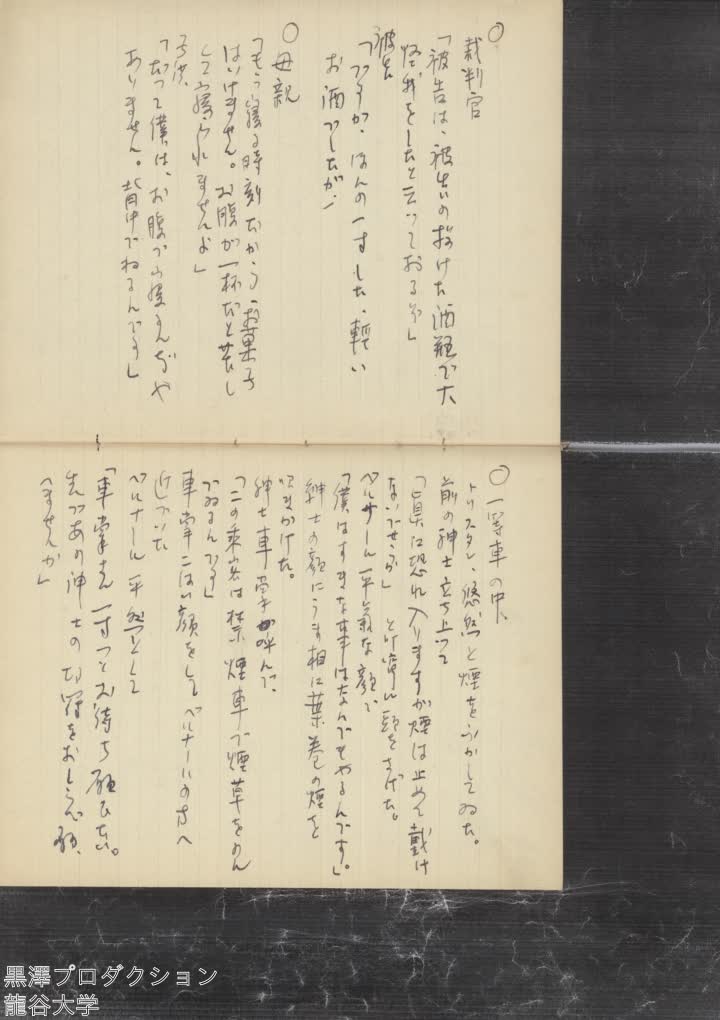 ○裁判官
「被告は、被告の投げた酒瓶で大
怪我をしたと云っておるぞ」
被告
「ですが、ほんの一寸した、軽い
お酒でしたが」
○母親
「もう寝る時刻だから、お菓子
はいけません。お腹が一杯だと苦し
して寝られませんよ」
子供、
「だって僕は、お腹で寝るんぢや
ありません。背中でねるんです」
○一等車の中、
トリスタン、悠然と煙をふかしてゐた。
前の紳士立ち上って
「真に恐れ入りますが煙は止めて戴け
ないでせうか」と叮嚀に頭をさげた。
ベルナール平気な顔で
「僕はすきな事はなんでもやるんです」
紳士の顔にうま相に葉巻の煙を
吹きかけた。
紳士車掌を呼んで、
「この乗客は禁煙車で煙草をのん
でゐるんです」
車掌こはい顔をしてベルナールの方へ
近づいた
ベルナール平然として
「車掌さん一寸っとお待ち願ひたい。
先づあの紳士の切符をおしらべ願
へませんか」
黒澤プロダクション
龍谷大学